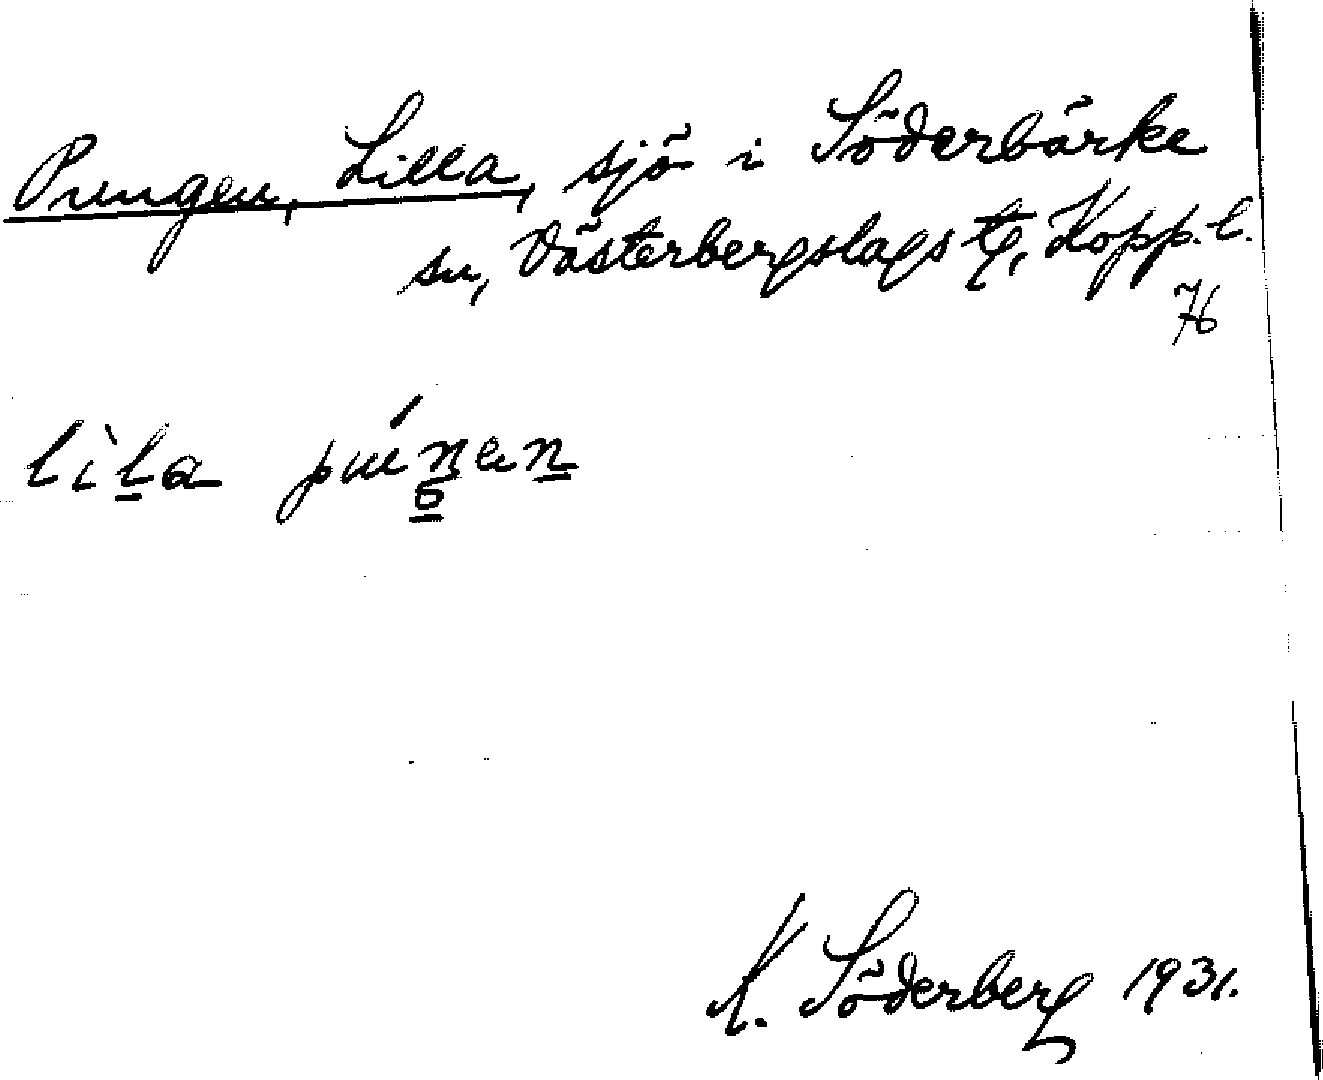 Pungen, Lilla, sjö i Söderbärke
sn, Västerbergslags tg, Kopp. l.
76
K. Söderberg 1931.